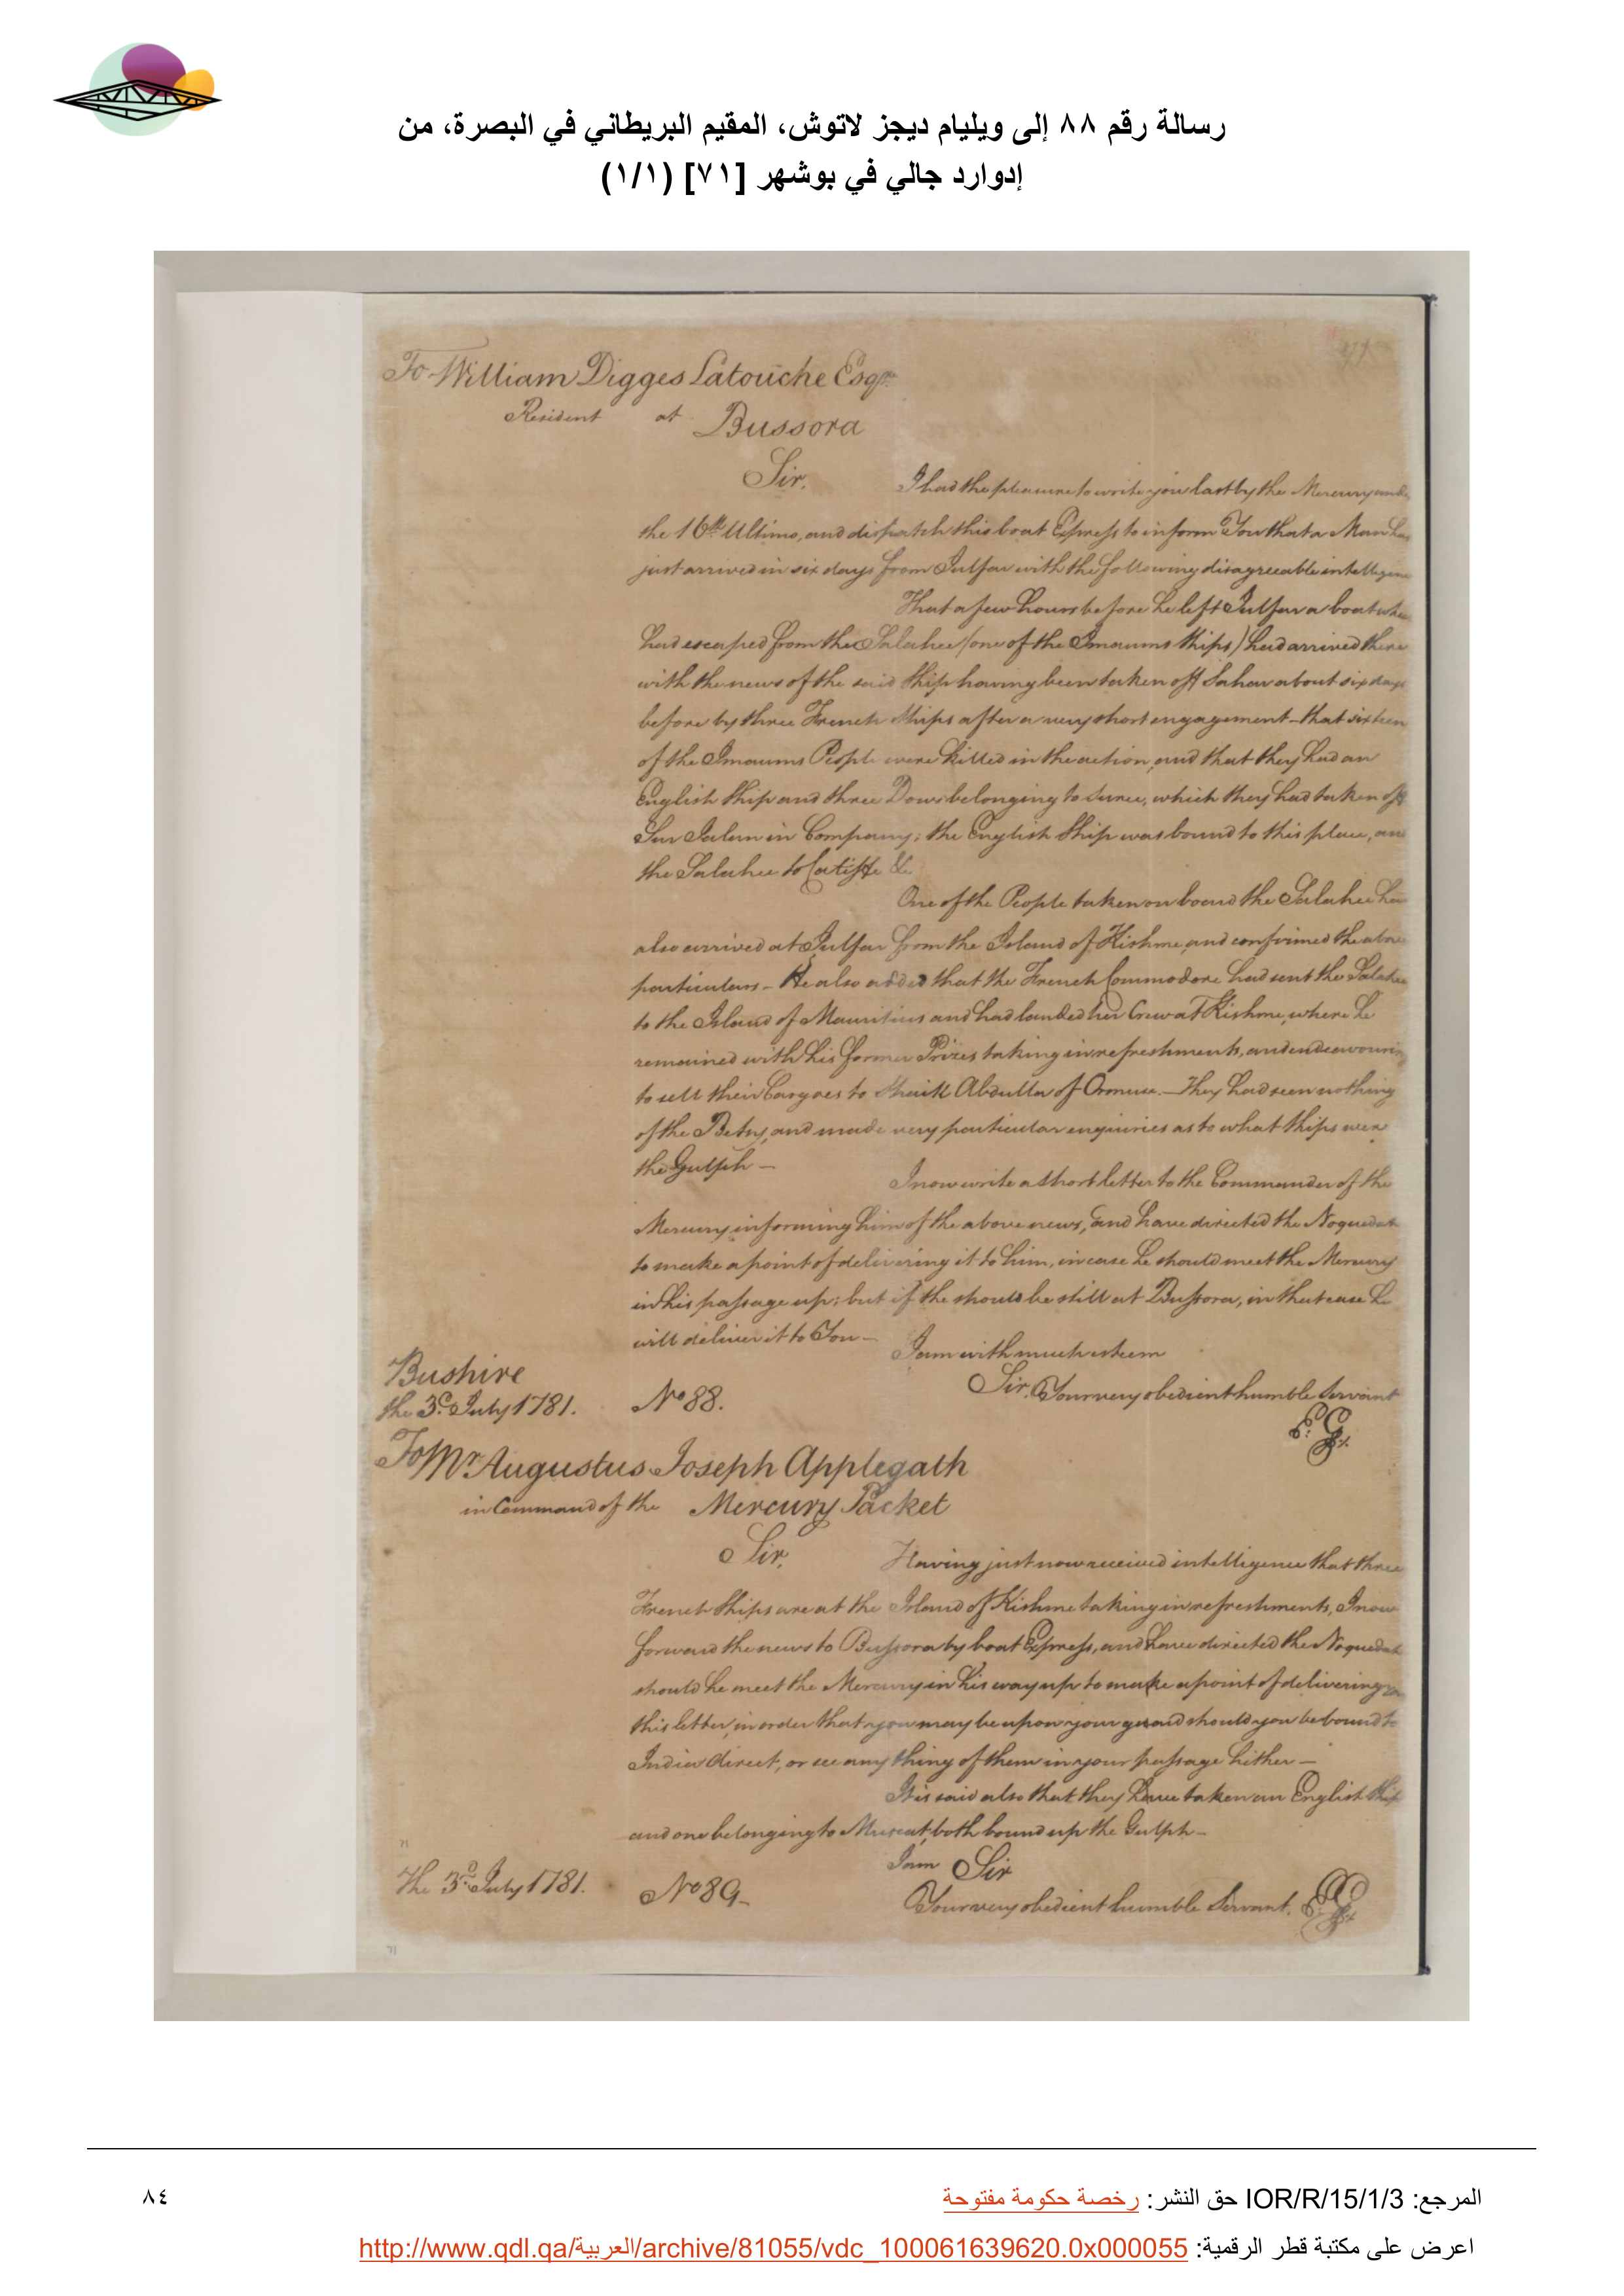 رسالة رقم ٨٨ إلى ويليام ديجز لاتوش، المقيم البريطاني في البصرة، من
إدوارد جالي في بوشهر [٧١] (١/١)
71
To William Digges Latouche Esqr.
Resident at Bussora
Sir,
I had the pleasure to write you last by the Mercury under
the 16th Ultimo, and dispatch this boat Express to inform You that a Man has
just arrived in six days from Julfar with the following disagreeable intelligence
That a few hours before he left Julfar a boat which
had escaped from the Salahee (one of the Imaums Ships) had arrived there
with the news of the said Ship having been taken off Sahar about six days
before by three French Ships after a very short engagement - that sixteen
of the Imaums People were killed in the action, and that they had an
English Ship and three Dows belonging to Suree, which they had taken off
in Company; the English Ship was bound to this place, and
the Salahee to Catiffe &c
One of the People taken on board the Salahee has
also arrived at Julfar from the Island of Kishme, and confirmed the above
particulars - He also added that the French Commodore had sent the Salahee
to the Island of Mauritius and had landed her Crew at Kishme, where he
remained with his former Prizes taking in refreshments, and endeavouring
to sell their Cargoes to Shaik Abdulla of Ormuse. - They had seen nothing
of the Betsy, and made very particular enquiries as to what ships were
the Gulph -
I now write a short letter to the Commander of the
Mercury informing him of the above news, and have directed the Noquedah
to make a point of delivering it to him, in case he should meet the Mercury
in his passage up; but if she should be still at Bussora, in that case he
will deliver it to You -
I am with much esteem
Sir, Your very obedient humble Servant
E. G.
Bushire
the 3d. July 1781.
No 88.
To Mr Augustus Joseph Applegath
in Command of the Mercury Packet
Sir,
Having just now received intelligence that three
French Ships are at the Island of Kishme taking in refreshments, I now
forward the news to Bussora by boat Express, and have directed the Noquedah
should he meet the Mercury in his way up to make a point of delivering
this letter, in order that you may be upon your guard should you be bound to
India direct, or see any thing of them in your passage hither -
It is said also that they have taken an English Ship
and one belonging to Muscat, both bound up the Gulph -
I am Sir
Your very obedient humble Servant. E G
71
The 3d. July 1781.
No 89 -
71
المرجع: IOR/R/15/1/3 حق النشر: رخصة حكومة مفتوحة
٨٤
اعرض على مكتبة قطر الرقمية: http://www.qdl.qa/العربية/archive/81055/vdc_100061639620.0x000055